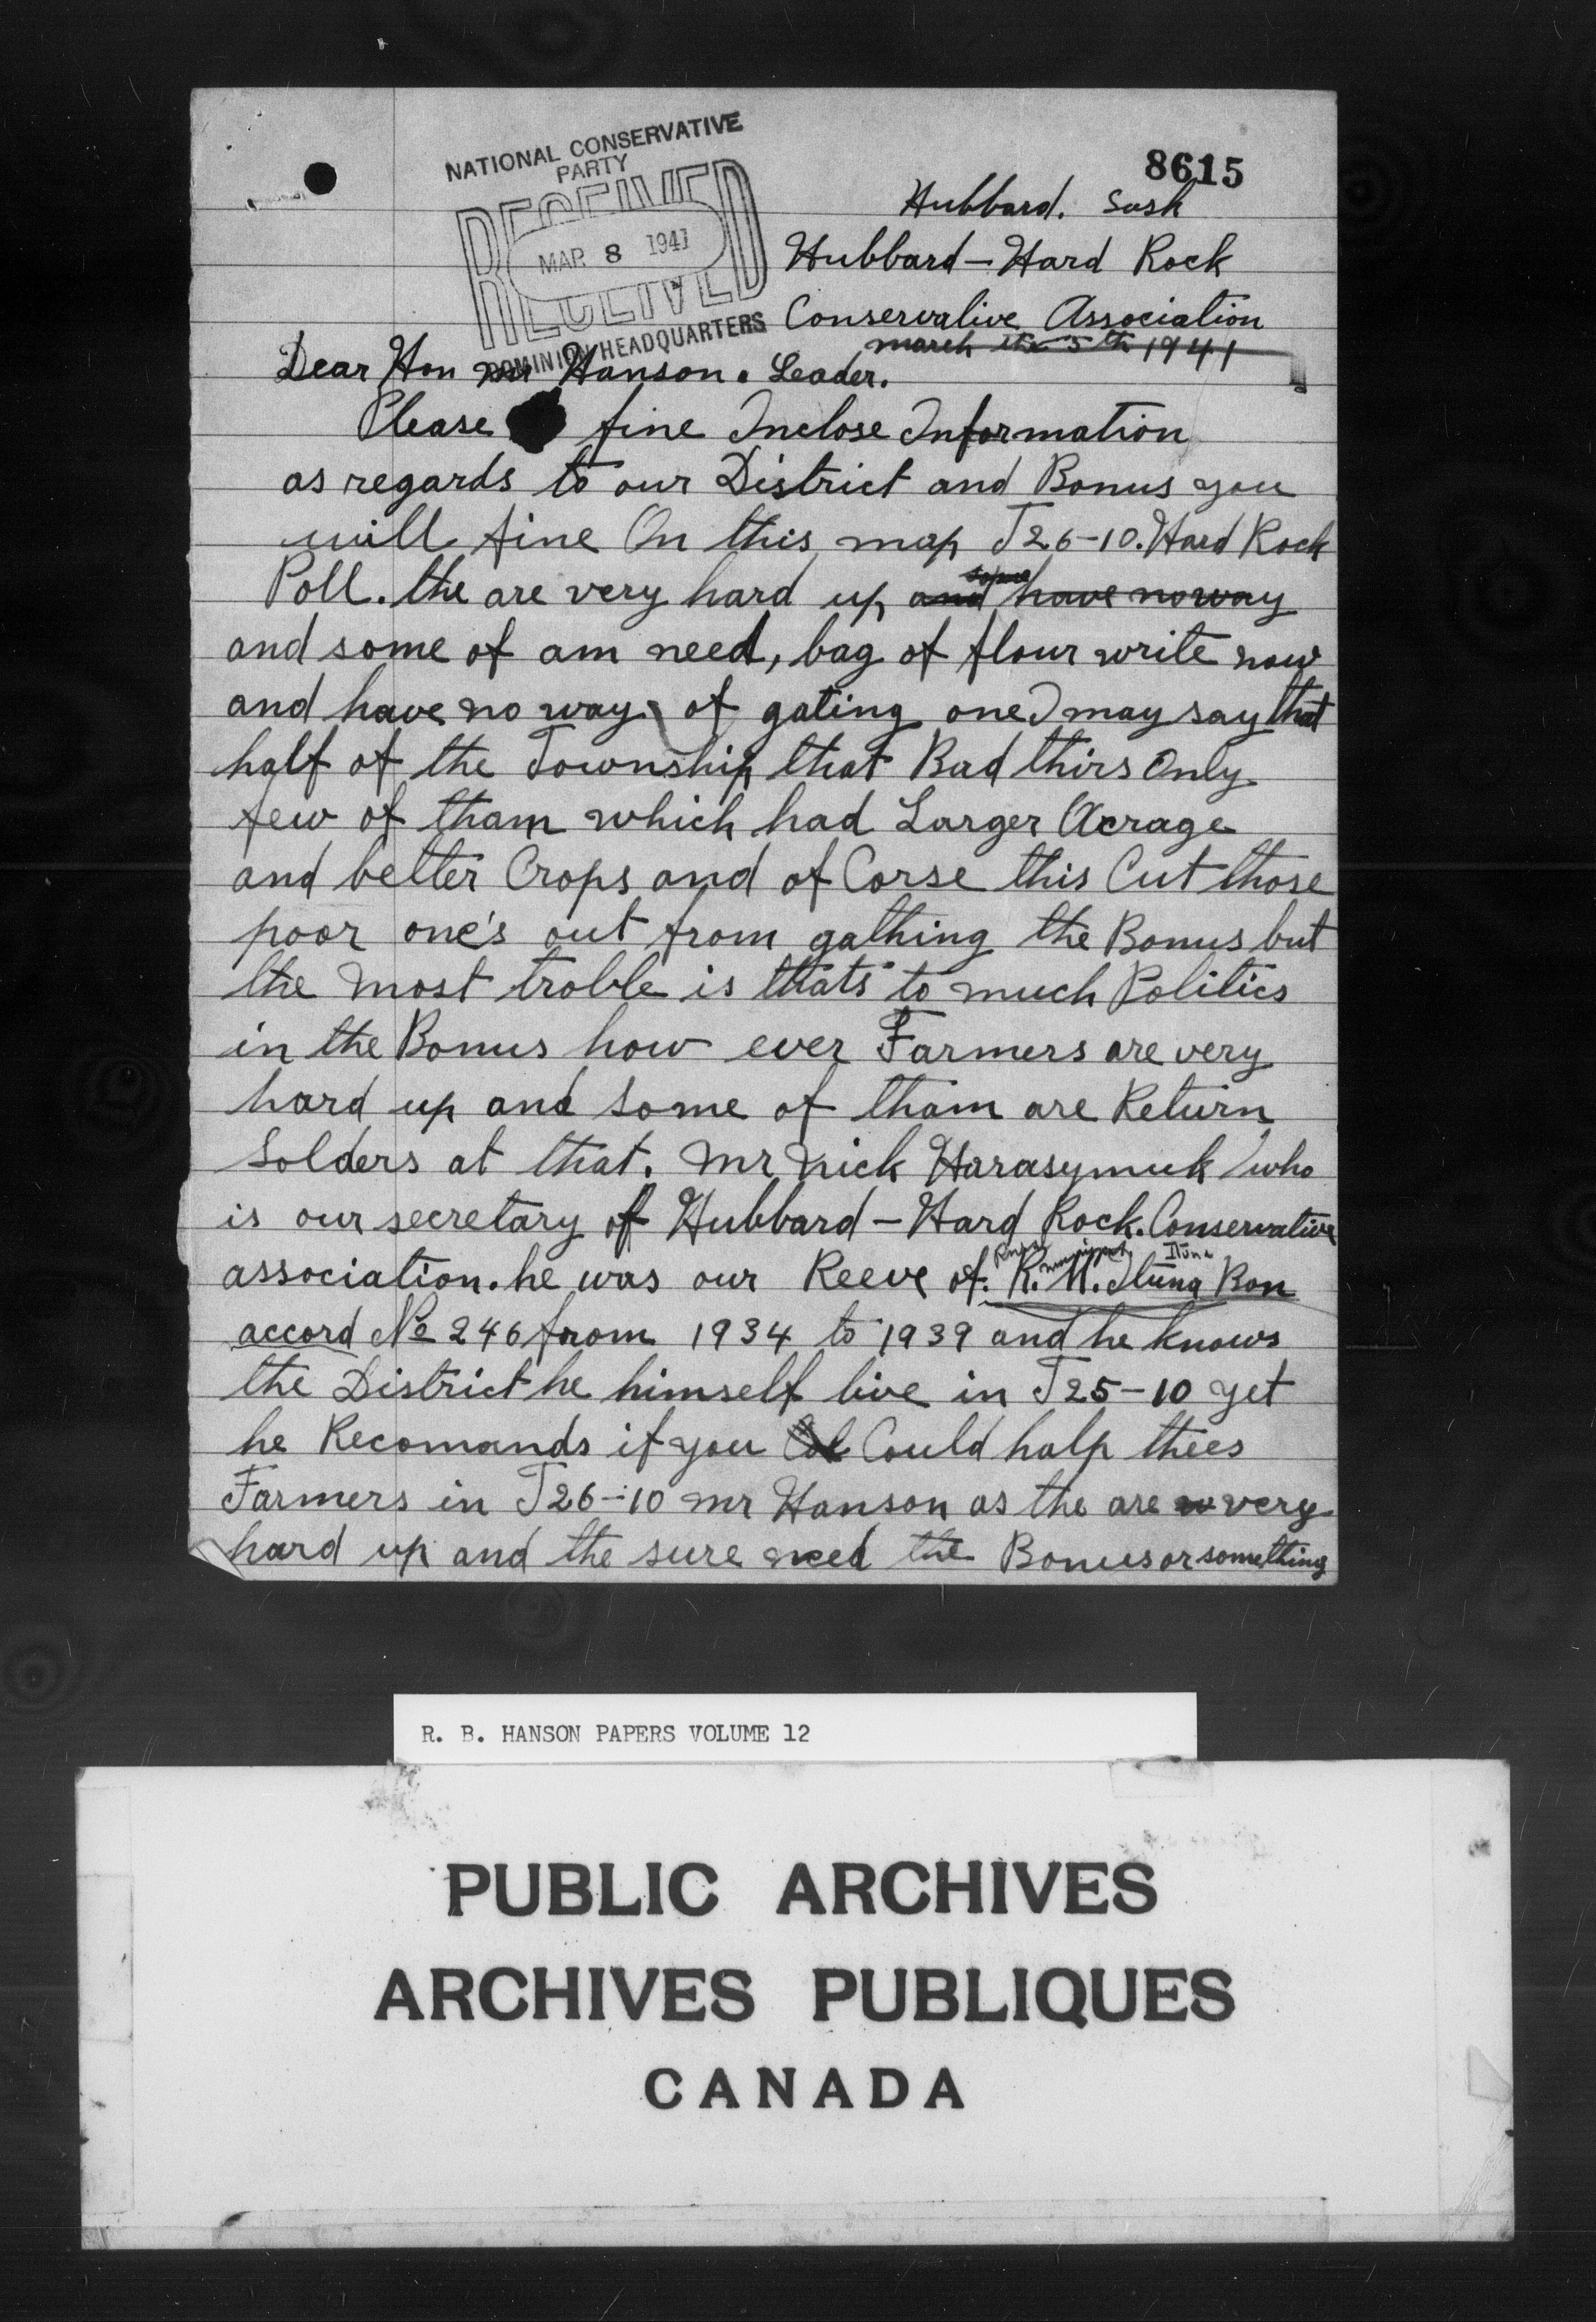 NATIONAL CONSERVATIVE
PARTY
RECEIVED
MAR 8 1941
RECEIVED
DOMINION HEADQUARTERS
8615
Hubbard. Sask
Hubbard – Hard Rock
Conservative Association
march the 5th 1941
Dear Hon mr Hanson. Leader.
Please fine Inclose Information
as regards to our District and Bonus you
will fine On this map T26-10. Hard Rock
Poll. the are very hard up and some have no way
and some of am need, bag of flour write now
and have no way of gating one I may say that
half of the Township that Bad thirs Only
few of tham which had Larger Acrage
and better Crops and of Corse this Cut those
poor one's out from gathing the Bonus but
the most troble is thats to much Politics
in the Bonus how ever Farmers are very
hard up and some of tham are Return
Solders at that. Mr Nick Harasymuk who
is our secretary of Hubbard – Hard Rock. Conservative
association. he was our Reeve of. R. M. Ituna Bon
accord No 246 from 1934 to 1939 and he knows
the District he himself live in T25-10 yet
he Recomands if you Could halp thees
Farmers in T26-10 mr Hanson as the are very
hard up and the sure need the Bonus or something
R. B. HANSON PAPERS VOLUME 12
PUBLIC ARCHIVES
ARCHIVES PUBLIQUES
CANADA